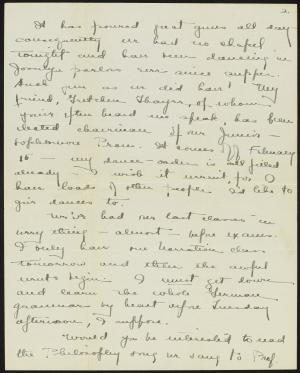 2.
It has poured just gives all day
consequently we had no chapel
tonight and have been dancing in
Josselyn parlors ever since supper.
Such fun as we did have! My
friend, Gretchen Thayer, of whom
you've often heard me speak, has been
elected chairman of our Junior-
Sophomore Prom. It comes February
15 - my dance-order is all filled
already - I wish it weren't, for I
have loads of other people I'd like to
give dances to.
We've had our last classes in
every thing - almost - before exams.
I only have one Narration class
tomorrow and then the awful
week begins. I must get down
and learn the whole German
grammar by heart before Tuesday
afternoon, I suppose.
Would you be interested to read
the Philosophy song we sang to Prof.